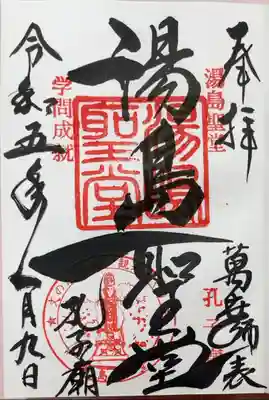 奉拝
湯島聖堂
萬世師表
湯島聖堂
孔子廟
学問成就
令和五年一月九日